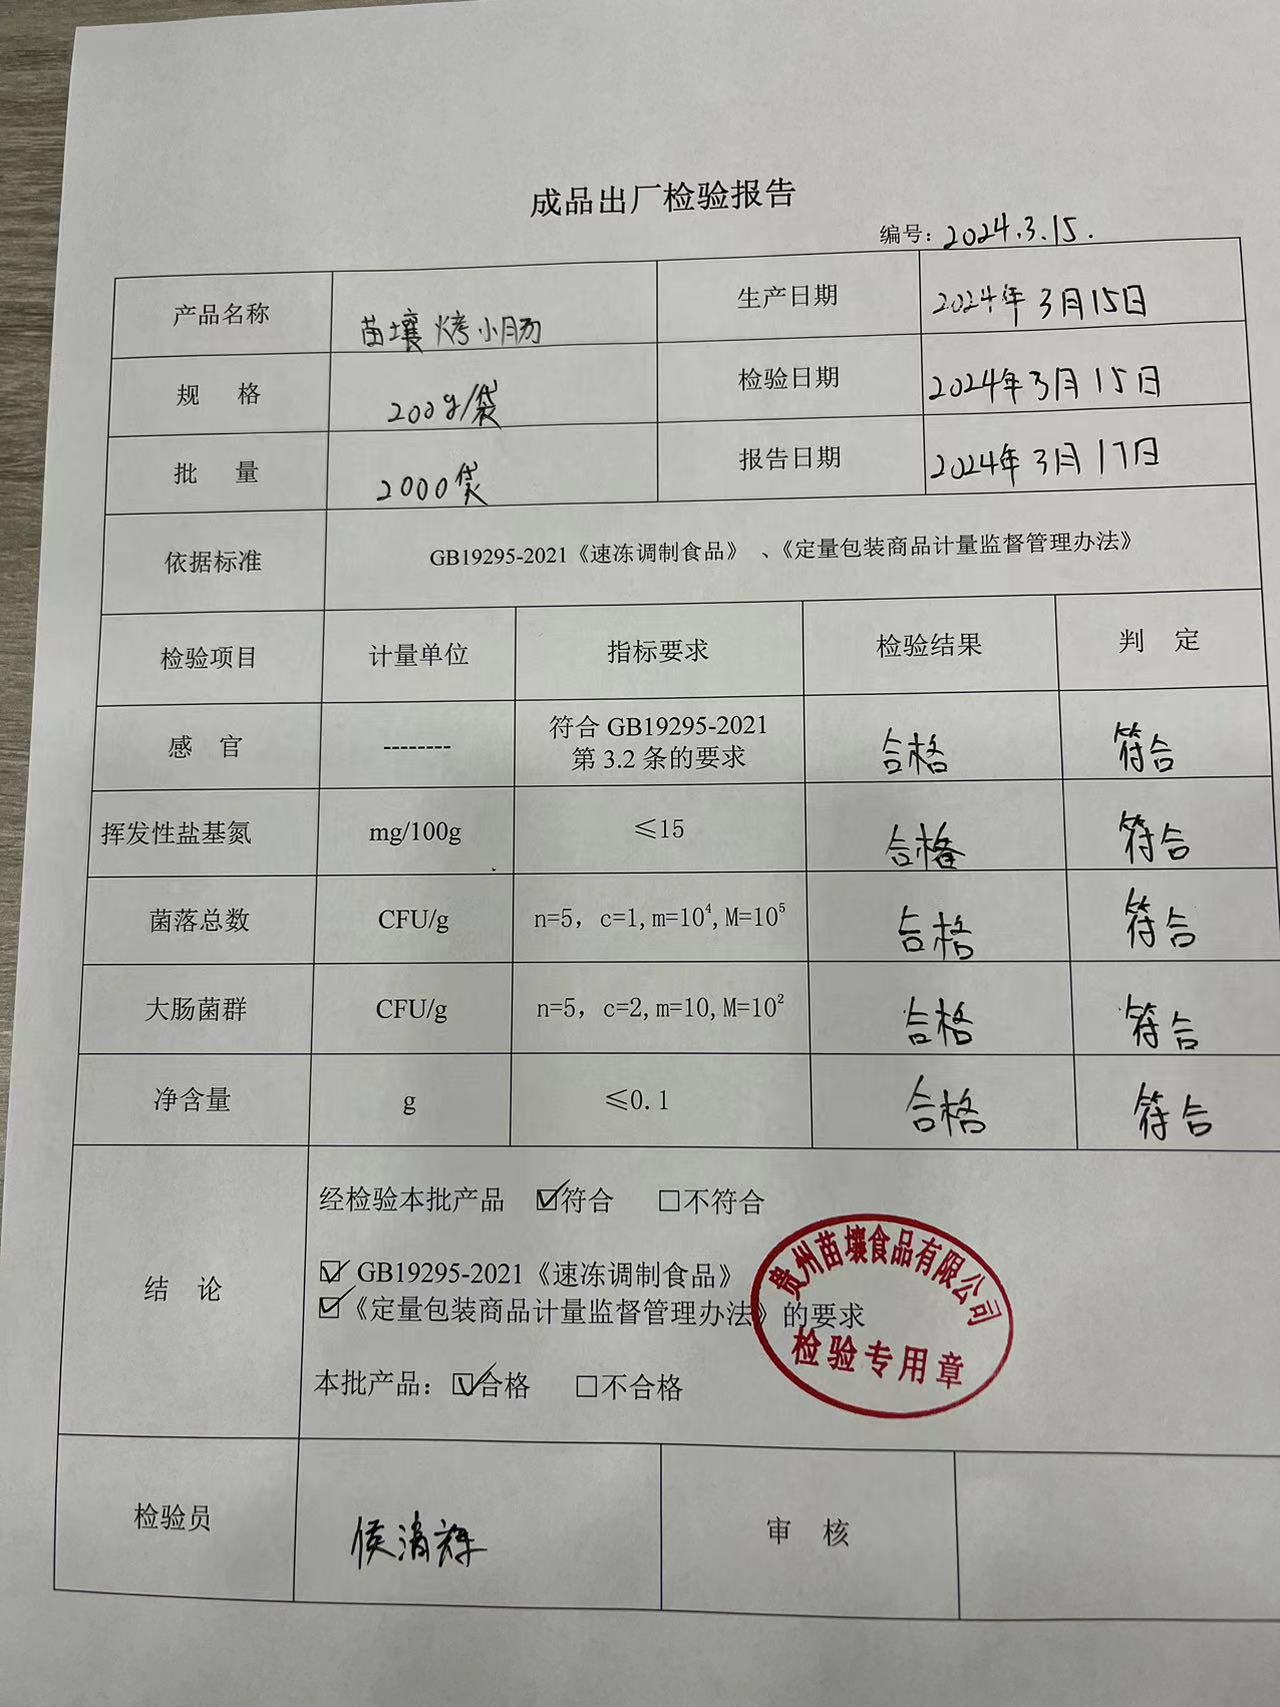 成品出厂检验报告
编号：2024.3.15.
产品名称 苗壤烤小肠 生产日期 2024年3月15日
规 格 200g/袋 检验日期 2024年3月15日
批 量 2000袋 报告日期 2024年3月17日
依据标准 GB19295-2021《速冻调制食品》、《定量包装商品计量监督管理办法》
检验项目 计量单位 指标要求 检验结果 判 定
感 官 -------- 符合 GB19295-2021 第 3.2 条的要求 合格 符合
挥发性盐基氮 mg/100g ≤15 合格 符合
菌落总数 CFU/g n=5，c=1,m=10⁴,M=10⁵ 合格 符合
大肠菌群 CFU/g n=5，c=2,m=10,M=10² 合格 符合
净含量 g ≤0.1 合格 符合
结 论
经检验本批产品 ☑符合 □不符合
☑ GB19295-2021《速冻调制食品》
☑《定量包装商品计量监督管理办法》的要求
本批产品：☑合格 □不合格
贵州苗壤食品有限公司
检验专用章
检验员 侯 审 核